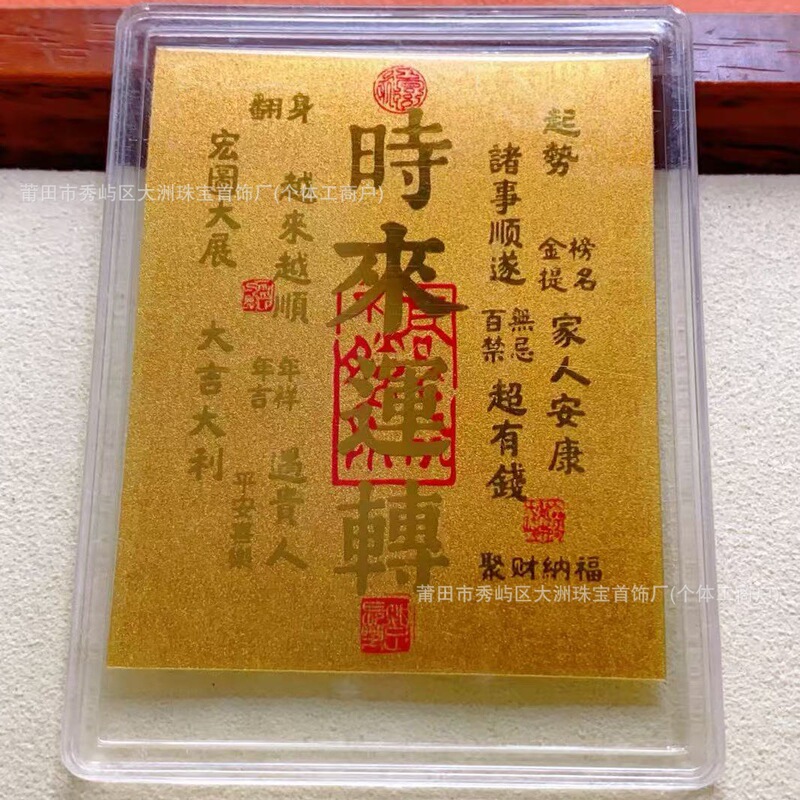 起勢
諸事順遂
金榜
提名
百無
禁忌
家人安康
超有錢
聚财納福
時來運轉
翻身
越來越順
宏圖大展
年年
吉祥
遇貴人
大吉大利
平安喜樂
莆田市秀屿区大洲珠宝首饰厂(个体工商户)
莆田市秀屿区大洲珠宝首饰厂(个体工商户)